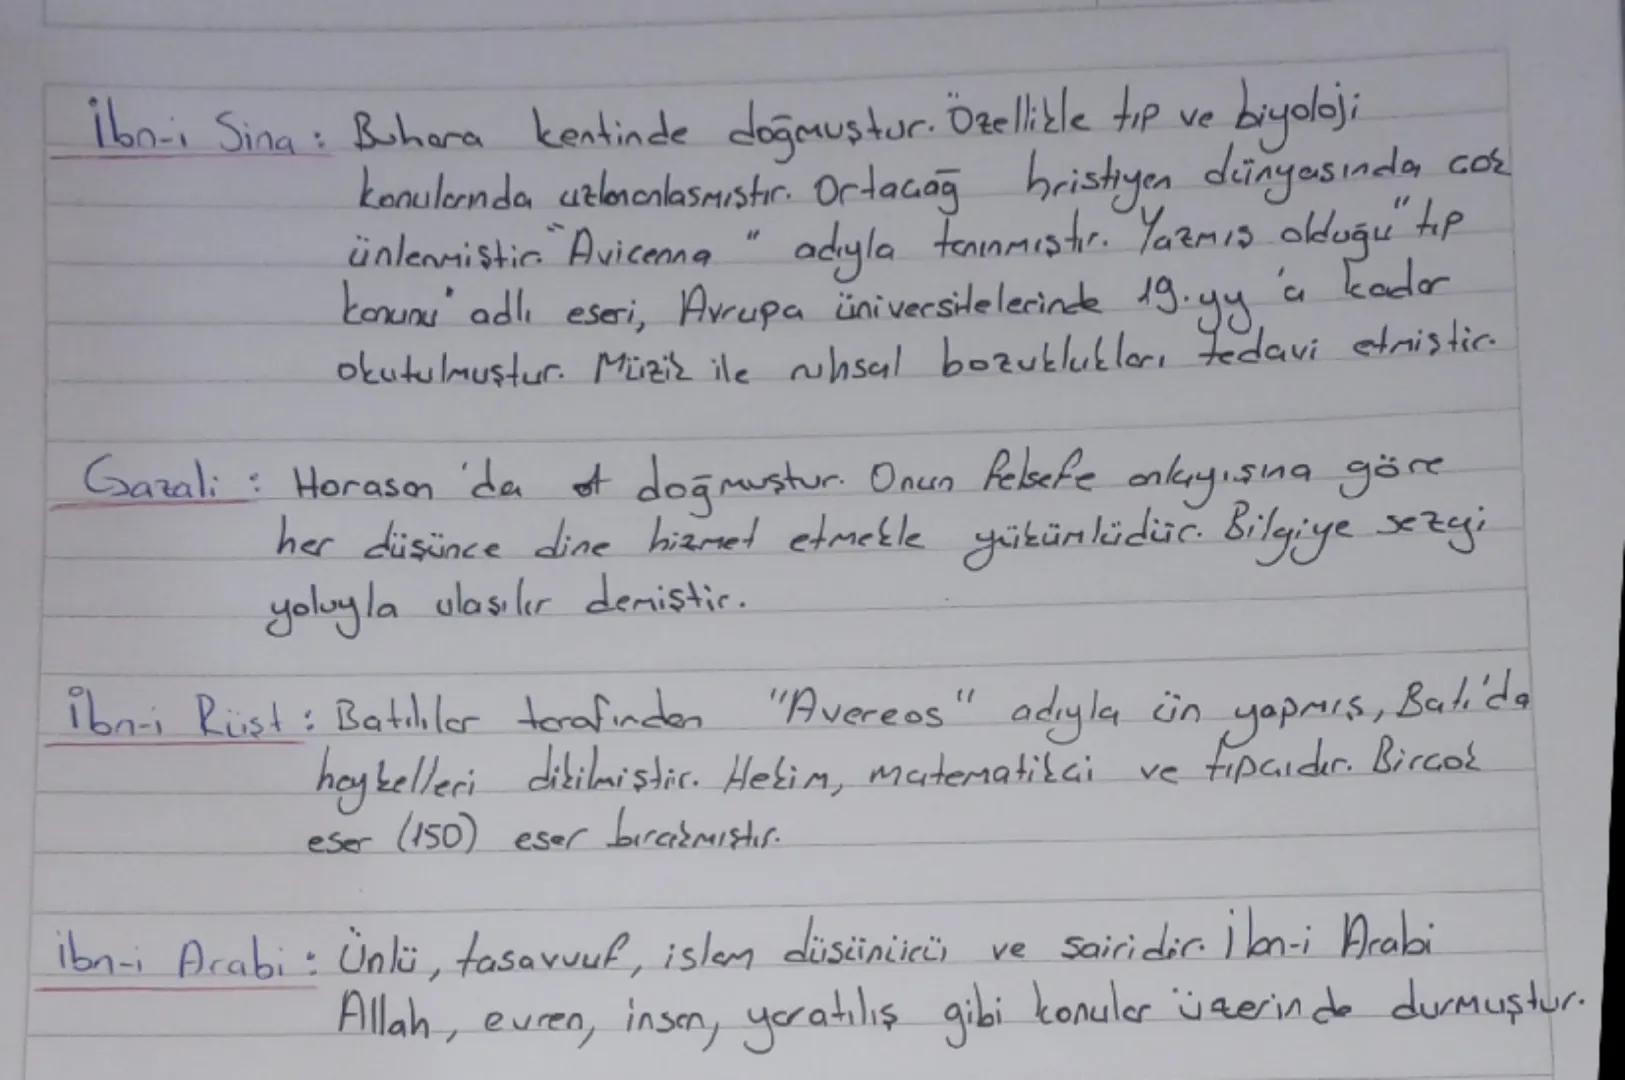 İbn-i Sina: Buhara kentinde doğmuştur. Özellikle tıp ve biyoloji
konularında uzlmanlasmıstır. Ortacağ hristiyen dünyasında cok
ünlenmiştir. "Avicenna" adıyla tanınmıştır. Yazmıs olduğu "tıp
konunu" adlı eseri, Avrupa üniversitelerinde 19.yy'a kadar
okutulmuştur. Müzik ile ruhsal bozuklukları tedavi etmiştir.
Gazali: Horasan'da doğmuştur. Onun felsefe anlayışına göre
her düşünce dine hizmet etmekle yükümlüdür. Bilgiye sezgi
yoluyla ulasılır demiştir.
İbn-i Rüşt: Batılılar tarafından "Avereos" adıyla ün yapmış, Batı'da
heykelleri dikilmiştir. Hekim, matematikci ve tıpcıdır. Bircok
eser (150) eser bırakmıstır.
ibn-i Arabi: Ünlü, tasavvuf, islam düsünürü ve sairidir. İbn-i Arabi
Allah, evren, insan, yaratılış gibi konular üzerinde durmuştur.